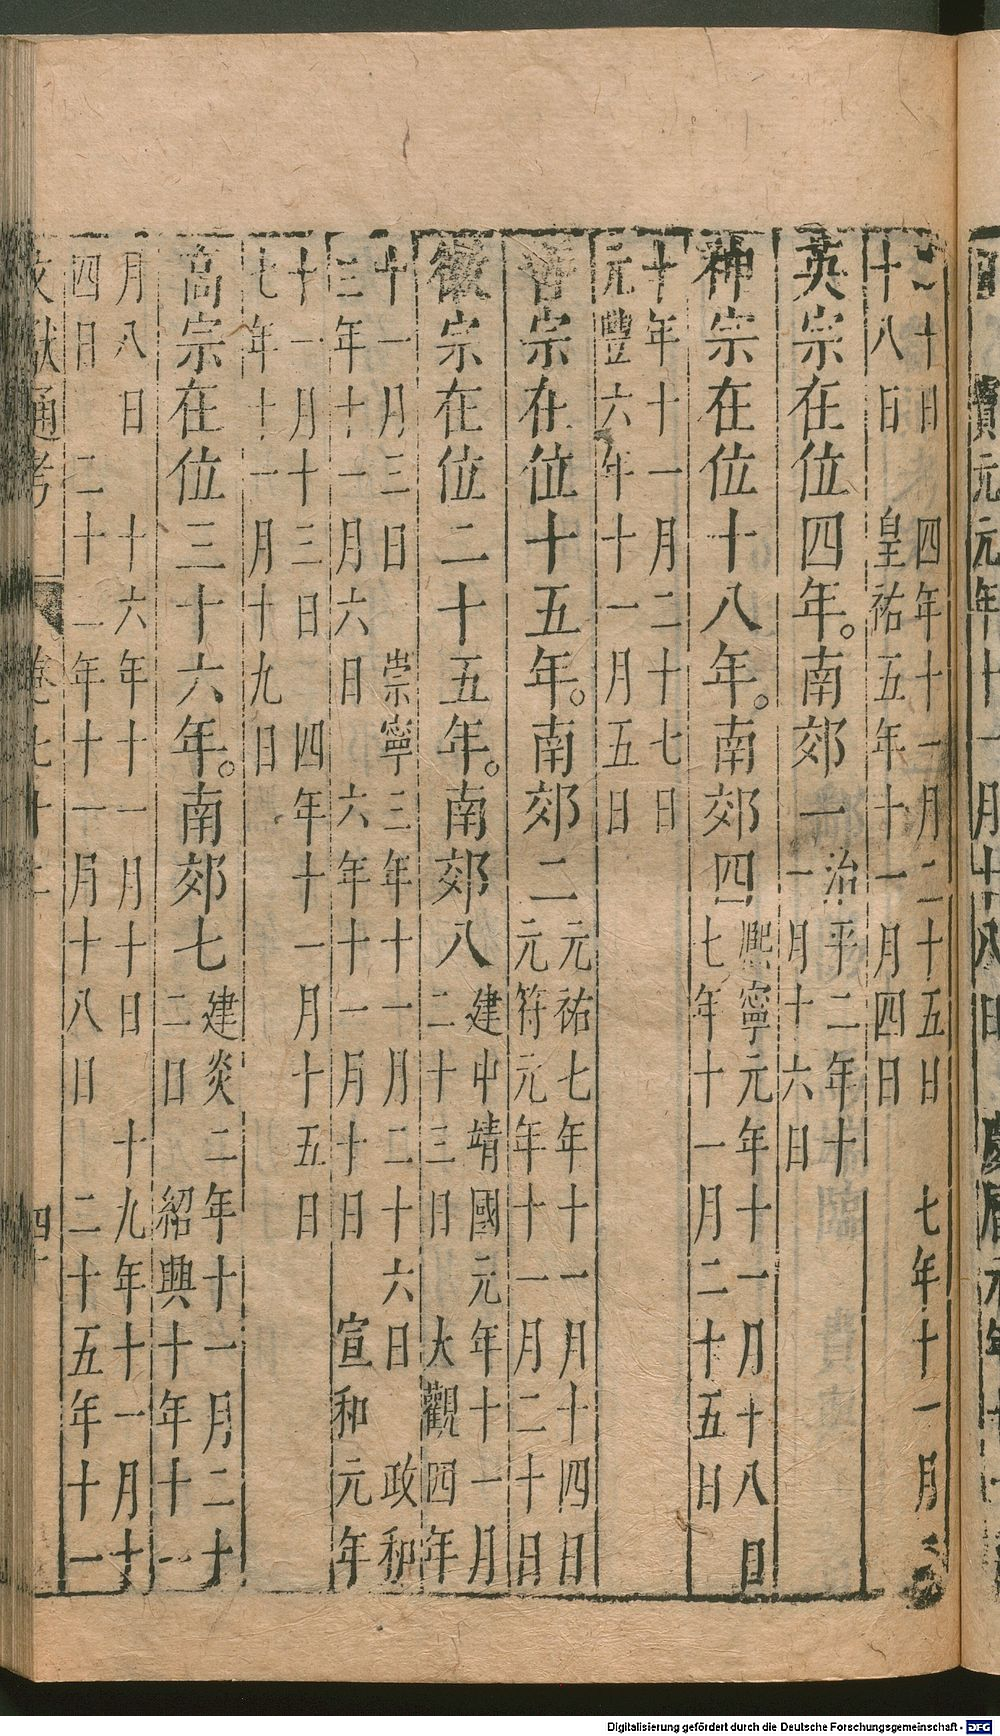 寶元元年十一月十八日 慶曆元年十
二十日 四年十一月二十五日 七年十一月二
十八日 皇祐五年十一月四日
英宗在位四年。南郊一 治平二年十
一月十六日
神宗在位十八年。南郊四 熙寧元年十一月十八日
七年十一月二十五日
十年十一月二十七日
元豐六年十一月五日
哲宗在位十五年。南郊二 元祐七年十一月十四日
元符元年十一月二十日
徽宗在位二十五年。南郊八 建中靖國元年十一月
二十三日 大觀四年
十一月三日 崇寧三年十一月二十六日 政和
三年十一月六日 六年十一月十日 宣和元年
十一月十三日 四年十一月十五日
七年十一月十九日
高宗在位三十六年。南郊七 建炎二年十一月二十
二日 紹興十年十一
月八日 十六年十一月十日 十九年十一月十
四日 二十二年十一月十八日 二十五年十一
文獻通考 卷七十二 四十
Digitalisierung gefördert durch die Deutsche Forschungsgemeinschaft - DFG